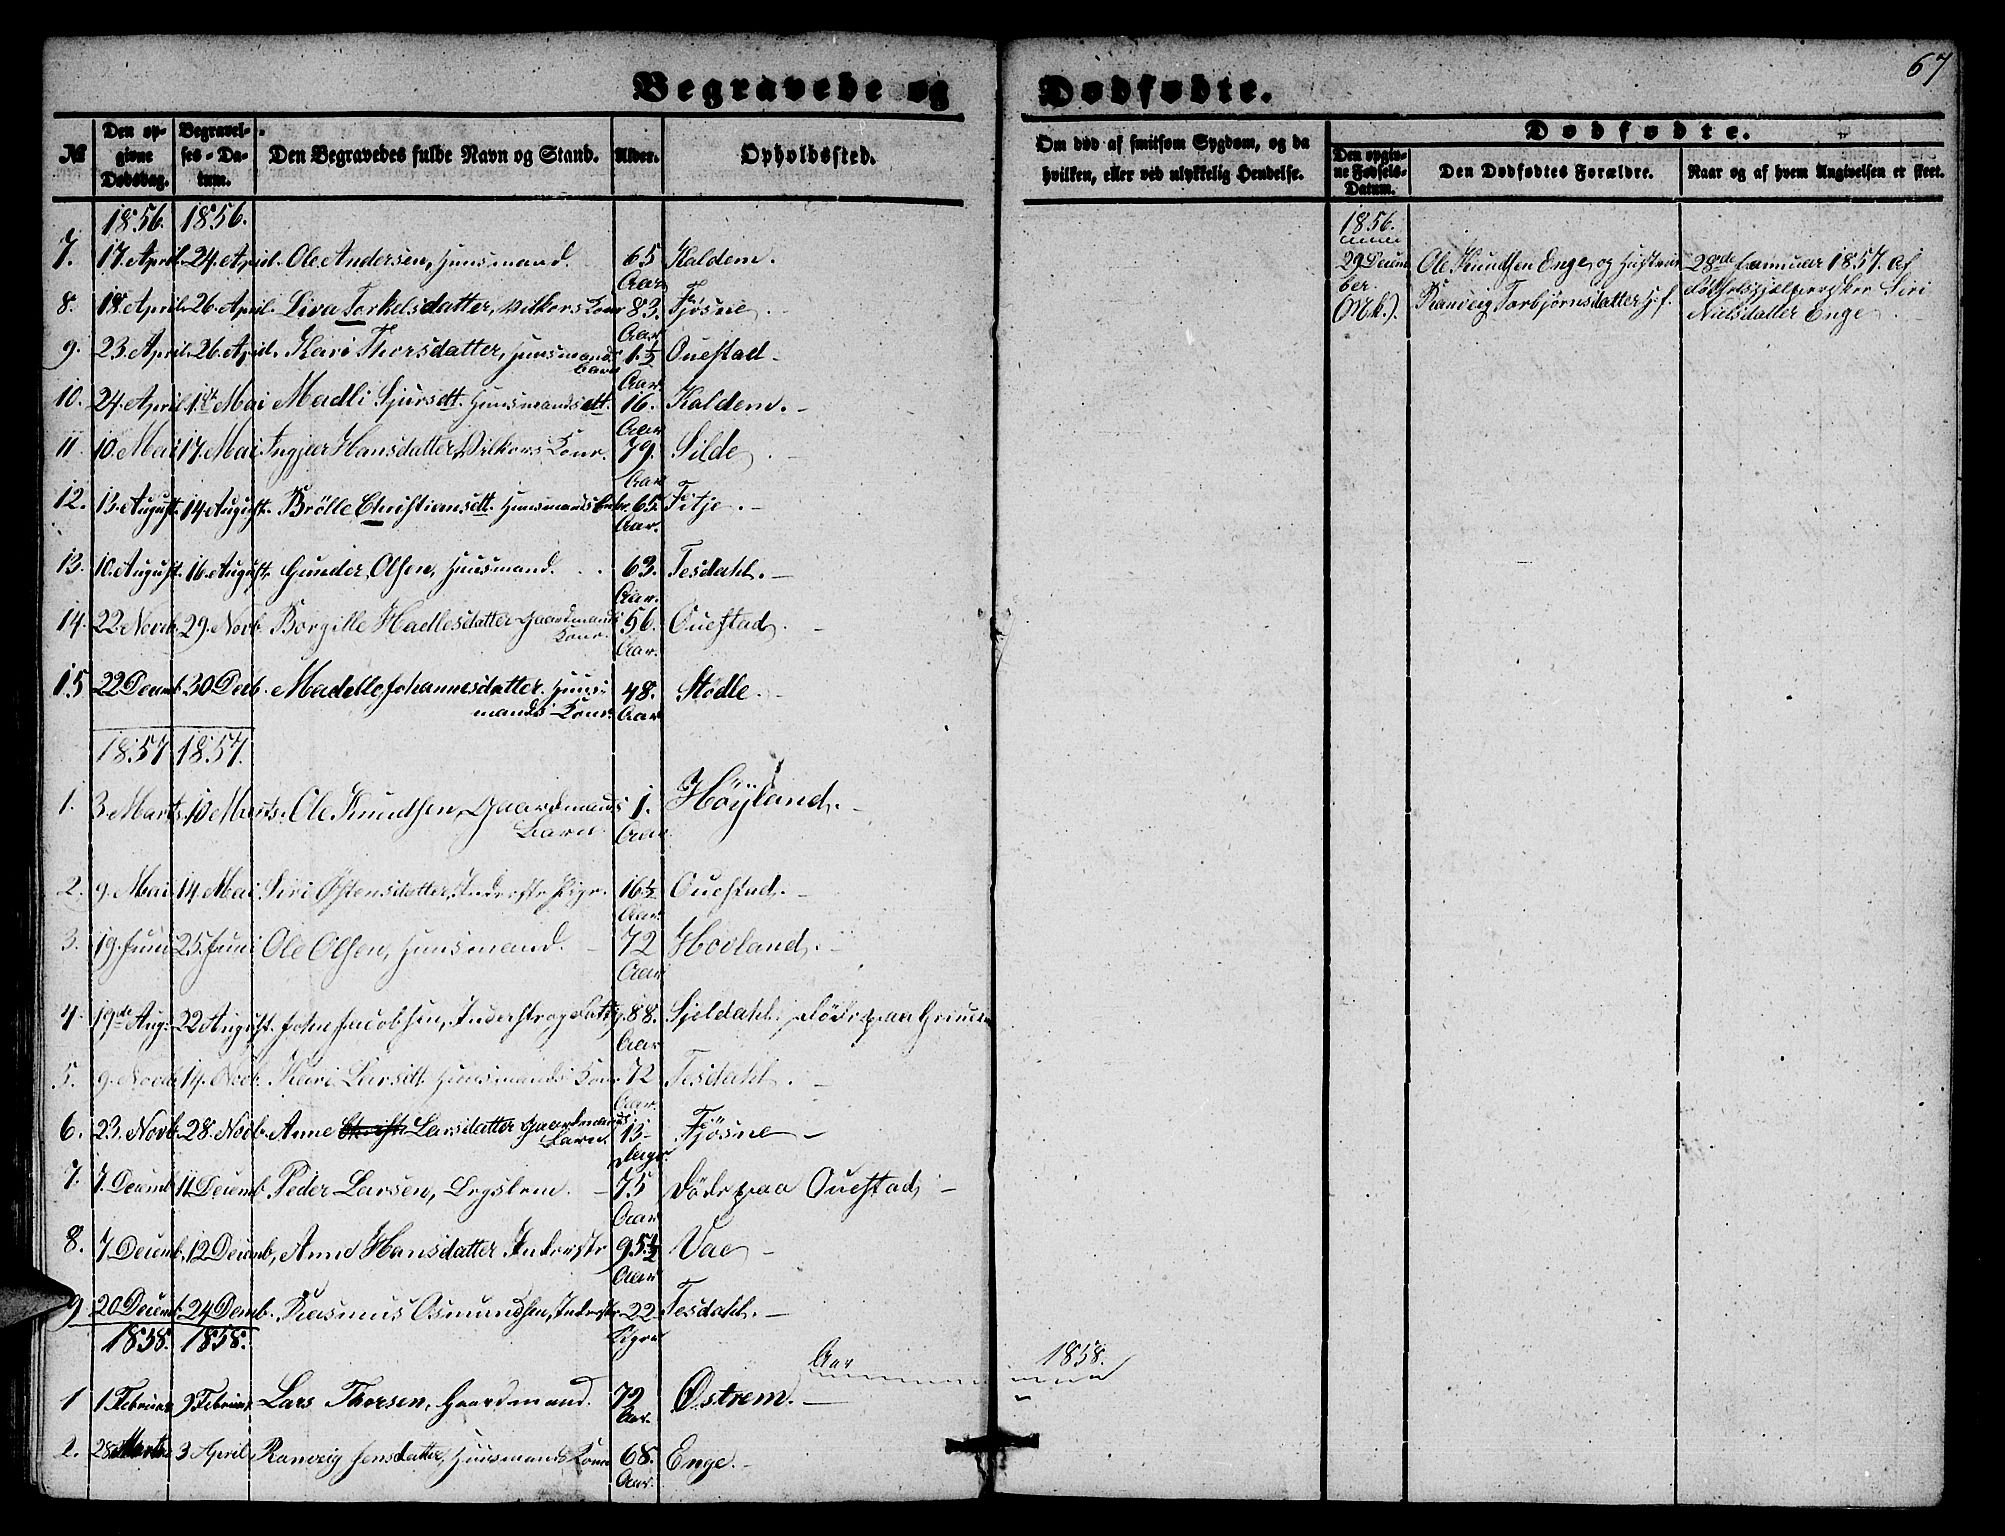 67
Begravede og Dødfødte.
№ Den opgivne Dødsdag. Begravelses-Datum. Den Begravedes fulde Navn og Stand. Alder. Opholdssted. Om død af smitsom Sygdom, og da hvilken, eller ved ulykkelig Hendelse. Dødfødte. Den opgivne Fødsels-Datum. Den Dødfødtes Forældre. Naar og af hvem Angivelsen er skeet.
1856. 1856.
7. 17. April. 24. April. Ole Andersen, Huusmand. 65 Aar Kaldem.
8. 18. April. 26. April. Liva Torkelsdatter, Vilkors Kone 83. Aar Fjøsne.
9. 23. April. 26. April. Kari Thorsdatter, Huusmands barn 1½ Aar. Ouestad
10. 24. April. 1st Mai Madli Sjursdtt. Huusmandsdtt. 16. Aar Kaldem.
11 10. Mai 17. Mai Ingjær Hansdatter, Vilkors Kone. 79. Aar Silde
12. 13. August. 14. August. Brölle Christiansdtt. Huusmands 65 Aar. Fitje.
13. 10. August. 16. August. Gunder Olsen, Huusmand. 63. Aar. Tesdahl.
14. 22. Novb. 29. Novb. Borgille Hadlesdatter Gaardmands Kone. 56. Aar. Ouestad
15 22 Decemb. 30 Decb. Madelle Johannesdatter. Huusmands Kone. 48. Aar Stödle.
1857. 1857.
1. 3. Marts. 10. Marts. Ole Knudsen, Gaardmands Barn. 1. Aar. Höyland.
2. 9. Mai 14. Mai Siri Østensdatter, Inderste Pige. 16½ Aar. Ouestad.
3. 19. Juni 25. Juni Ole Olsen, Huusmand. 72 Aar Hovland.
4. 19de Aug. 22 August. John Jacobsen, Inderst og Fattig. 88. Aar Sjeldahl. Döde paa
5. 9. Novb. 14. Novb. Kari Larsdtt. Huusmands Kone 72 Aar. Tesdahl.
6. 23. Novb. 28. Novb. Anne Larsdatter Gaardmands Barn. 13 Dage. Fjösne
7. 7. Decemb. 11 Decemb. Peder Larsen, Lægslem. 75 Aar Döde paa Ouestad
8. 7 Decemb. 12 Decemb. Anne Hansdatter Inderste 95½ Aar Vae
9 20 Decemb. 24 Decmb. Rasmus Osmundsen, Inderste 22 Tesdahl.
1858. 1858.
Aar 1858.
1 1. Februar 9 Februar Lars Thorsen, Gaardmand. 72 Aar. Østrem.
2. 28 Marts 3 April Ranveig Jensdatter, Huusmands Kone 68. Aar. Enge.
1856.
29 December. (Mk.). Ole Knudsen Enge og Hustrue Ranveig Torbjörnsdatter H. f. 28de Januar 1857. af Födselshjælpersken Siri Nielsdatter Enge